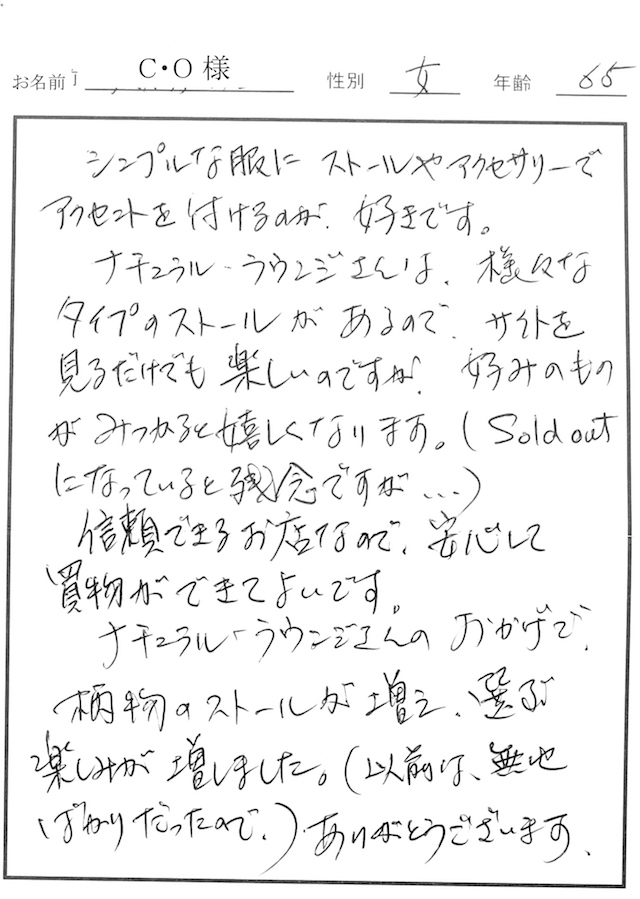 お名前 C・O 様 性別 女 年齢 65
シンプルな服に ストールやアクセサリーで
アクセントを付けるのが、好きです。
ナチュラル・ラウンジさんは、様々な
タイプのストールが あるので、サイトを
見るだけでも 楽しいのですが、好みのもの
が みつかると嬉しくなります。(Sold out
になっていると残念ですが…)
信頼できるお店なので、安心して
買物ができてよいです。
ナチュラル・ラウンジさんの おかげで、
柄物のストールが 増え、選ぶ
楽しみが 増しました。(以前は、無地
ばかりだったので、)ありがとうございます、